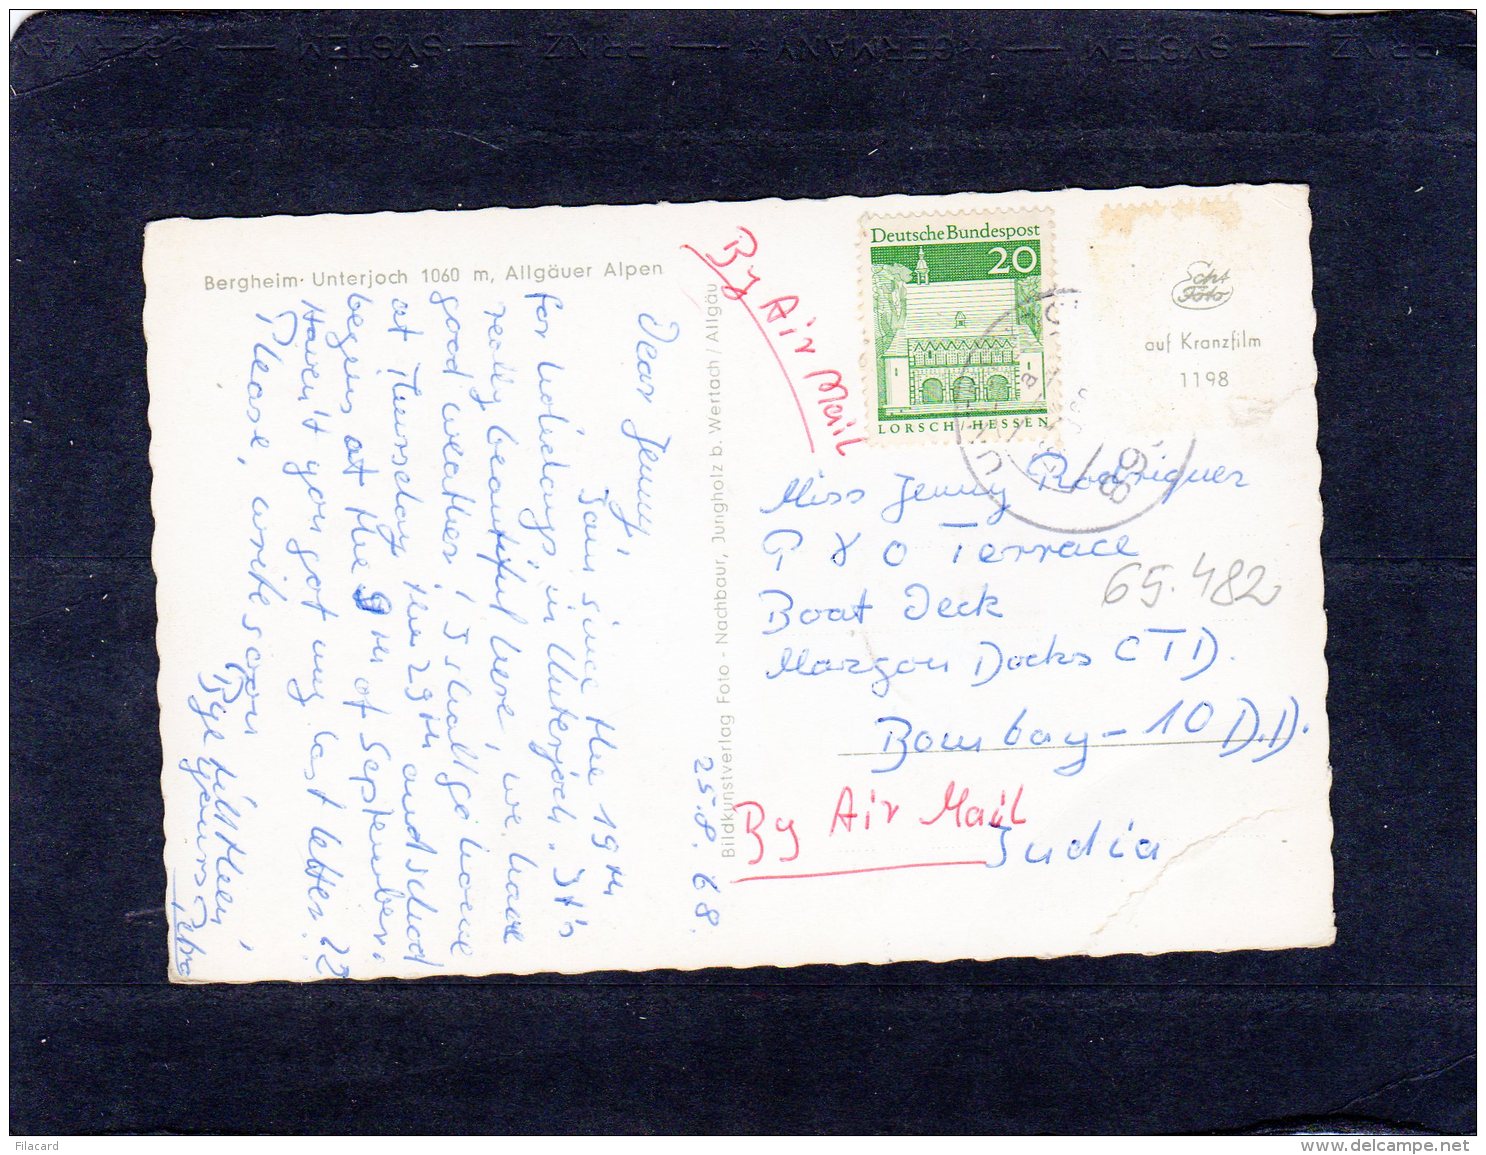 PRINZ — SYSTEM — PRINZ — *GERMANY* — SYSTEM — *GERMANY*
Bergheim · Unterjoch 1060 m, Allgäuer Alpen
25.8.68.
Dear Jenny,
I am since the 19th
for holidays in Unterjoch. It's
really beautiful here, we have
good weather, I shall go home
at Thursday the 29th and school
begins at the 9th of September.
Haven't you got my last letter??
Please, write soon
Bye till then,
yours
Petra
Bildkunstverlag Foto - Nachbaur, Jungholz b. Wertach / Allgäu
By Air Mail
Deutsche Bundespost
20
LORSCH / HESSEN
Echt
Foto
auf Kranzfilm
1198
Miss Jenny Rodriguez
P & O Terrace
65.482
Boat Deck
Mazgon Docks CTD.
Bombay - 10 D.D.
By Air Mail
India
Filacard
www.delcampe.net